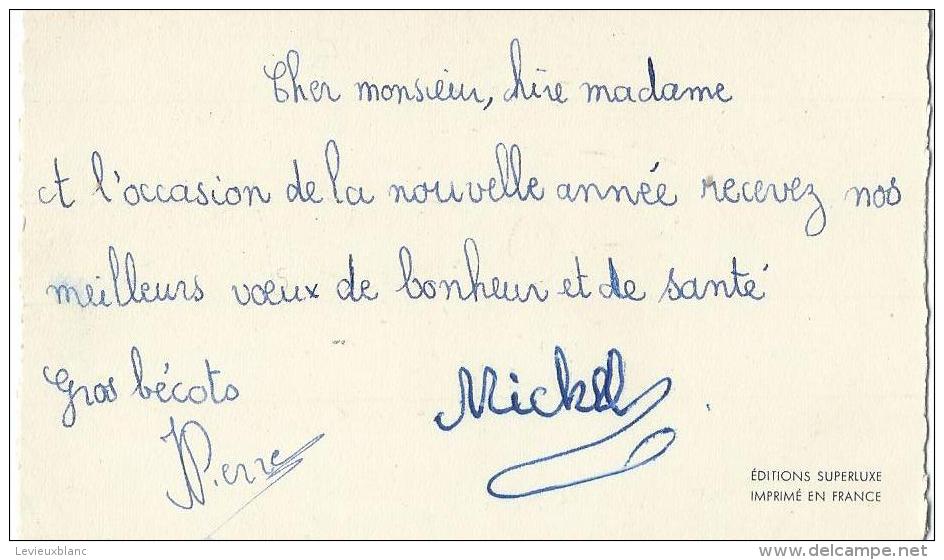 Cher monsieur, chère madame
A l'occasion de la nouvelle année recevez nos
meilleurs vœux de bonheur et de santé
Gros bécots
JPierre
Mickel
ÉDITIONS SUPERLUXE
IMPRIMÉ EN FRANCE
Levieuxblanc
www.delcampe.net